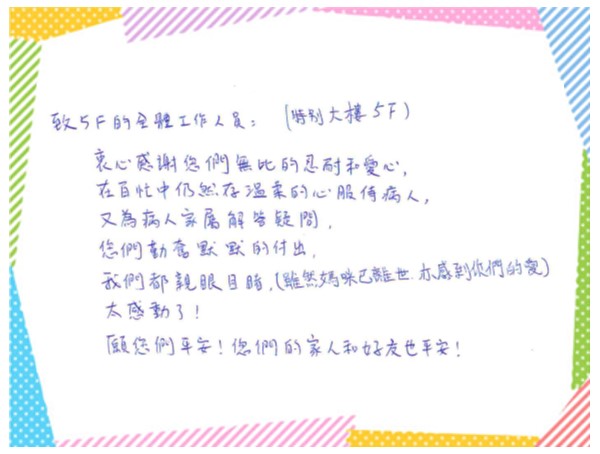 致5F的全體工作人員: (特別大樓5F)
衷心感謝您們無比的忍耐和愛心,
在百忙中仍然存溫柔的心服侍病人,
又為病人家屬解答疑問,
您們勤奮默默的付出,
我們都親眼目睹,(雖然媽咪已離世.亦感到你們的愛)
太感動了!
願您們平安!您們的家人和好友也平安!